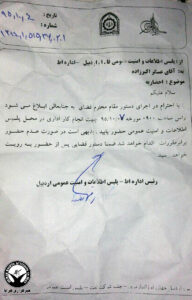 تاریخ: ۹۵،۱،۲
شماره:
از : پلیس اطلاعات و امنیت عمومی ف.ا.ا اردبیل – اداره اط
به : آقای عسگر اکبرزاده
موضوع : احضاریه
سلام علیکم
با احترام در اجرای دستور مقام محترم قضایی به جنابعالی ابلاغ می شود
راس ساعت ۰۹۰۰ مورخه جهت انجام کار اداری در محل پلیس
اطلاعات و امنیت عمومی حضور یابید . بدیهی است در صورت عدم حضور
برابر مقررات اقدام خواهد شد. ضمنا دستور قضایی پس از حضور به رویت
خواهد رسید
رئیس اداره اط – پلیس اطلاعات و امنیت عمومی اردبیل